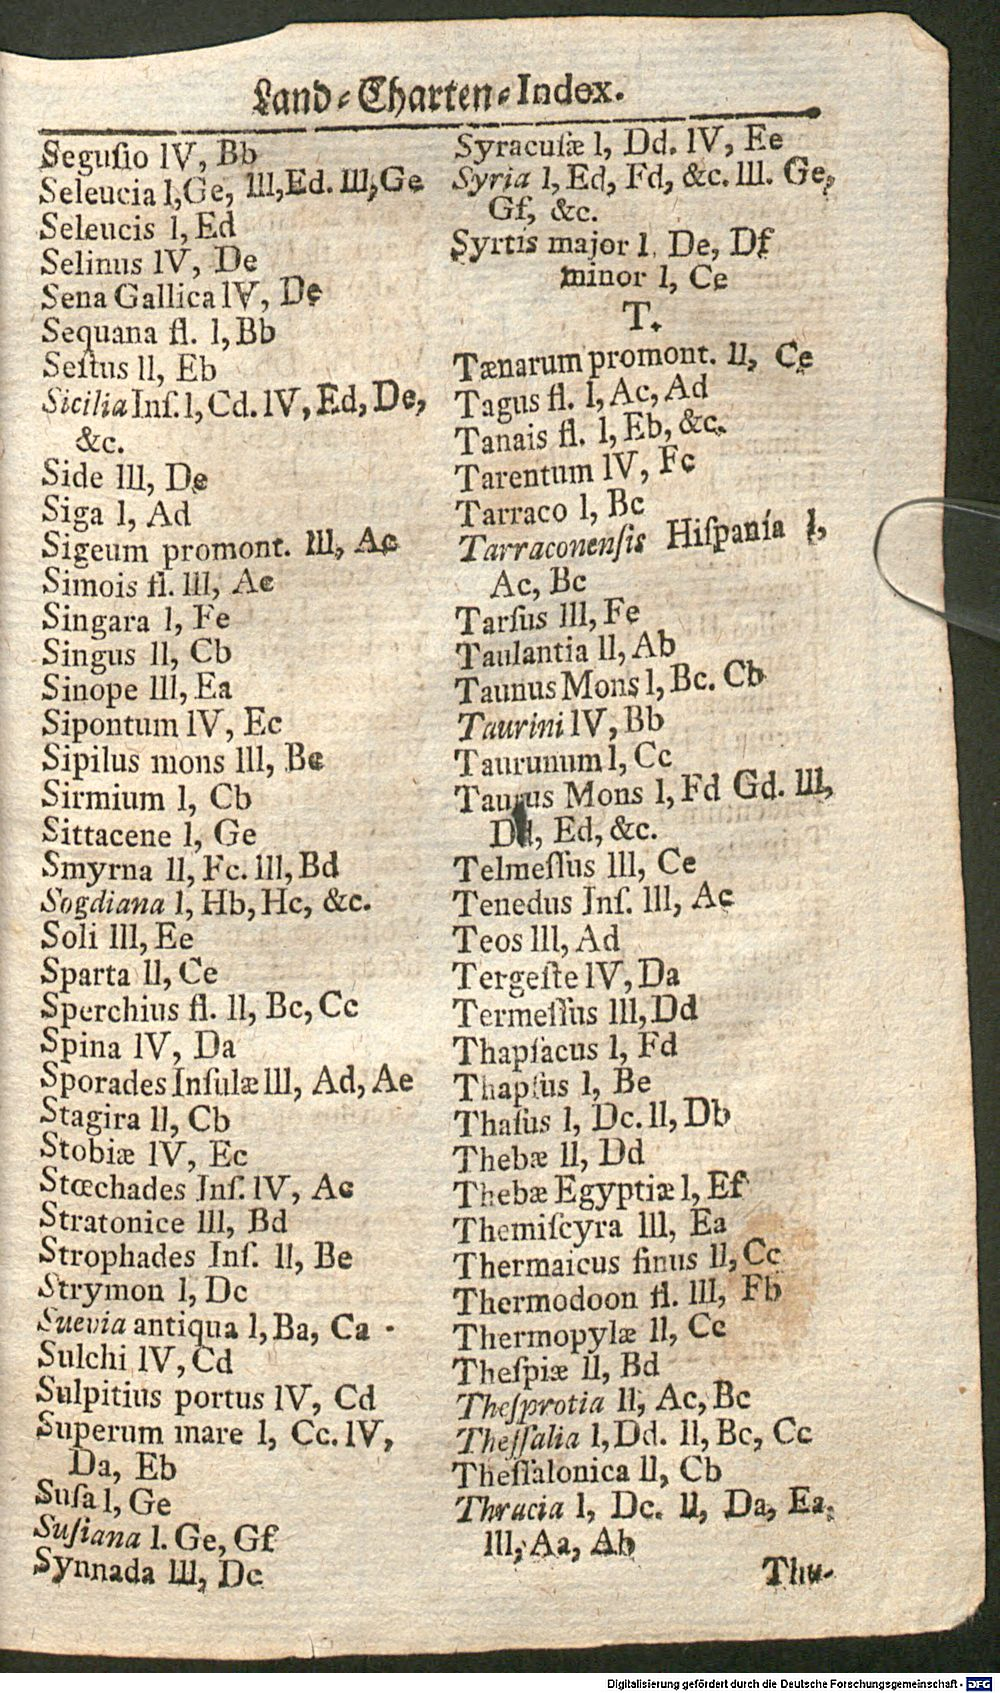 Land-Charten-Index.
Seguſio IV, Bb
Seleucia I, Ge, III, Ed. III, Ge
Seleucis I, Ed
Selinus IV, De
Sena Gallica IV, De
Sequana fl. I, Bb
Seſtus II, Eb
Sicilia Inſ. I, Cd. IV, Ed, De,
&c.
Side III, De
Siga I, Ad
Sigeum promont. III, Ac
Simois fl. III, Ac
Singara I, Fe
Singus II, Cb
Sinope III, Ea
Sipontum IV, Ec
Sipilus mons III, Be
Sirmium I, Cb
Sittacene I, Ge
Smyrna II, Fc. III, Bd
Sogdiana I, Hb, Hc, &c.
Soli III, Ee
Sparta II, Ce
Sperchius fl. II, Bc, Cc
Spina IV, Da
Sporades Inſulæ III, Ad, Ae
Stagira II, Cb
Stobiæ IV, Ec
Stœchades Inſ. IV, Ac
Stratonice III, Bd
Strophades Inſ. II, Be
Strymon I, Dc
Suevia antiqua I, Ba, Ca
Sulchi IV, Cd
Sulpitius portus IV, Cd
Superum mare I, Cc. IV,
Da, Eb
Suſa I, Ge
Suſiana I. Ge, Gf
Synnada III, Dc
Syracuſæ I, Dd. IV, Ee
Syria I, Ed, Fd, &c. III. Ge,
Gf, &c.
Syrtis major I, De, Df
minor I, Ce
T.
Tænarum promont. II, Ce
Tagus fl. I, Ac, Ad
Tanais fl. I, Eb, &c.
Tarentum IV, Fc
Tarraco I, Bc
Tarraconenſis Hiſpania I,
Ac, Bc
Tarſus III, Fe
Taulantia II, Ab
Taunus Mons I, Bc. Cb
Taurini IV, Bb
Taurunum I, Cc
Taurus Mons I, Fd Gd. III,
Dd, Ed, &c.
Telmeſſus III, Ce
Tenedus Inſ. III, Ac
Teos III, Ad
Tergeſte IV, Da
Termeſſus III, Dd
Thapſacus I, Fd
Thapſus I, Be
Thaſus I, Dc. II, Db
Thebæ II, Dd
Thebæ Egyptiæ I, Ef
Themiſcyra III, Ea
Thermaicus ſinus II, Cc
Thermodoon fl. III, Fb
Thermopylæ II, Cc
Theſpiæ II, Bd
Theſprotia II, Ac, Bc
Theſſalia I, Dd. II, Bc, Cc
Theſſalonica II, Cb
Thracia I, Dc. II, Da, Ea,
III, Aa, Ab
Thu-
Digitalisierung gefördert durch die Deutsche Forschungsgemeinschaft - DFG